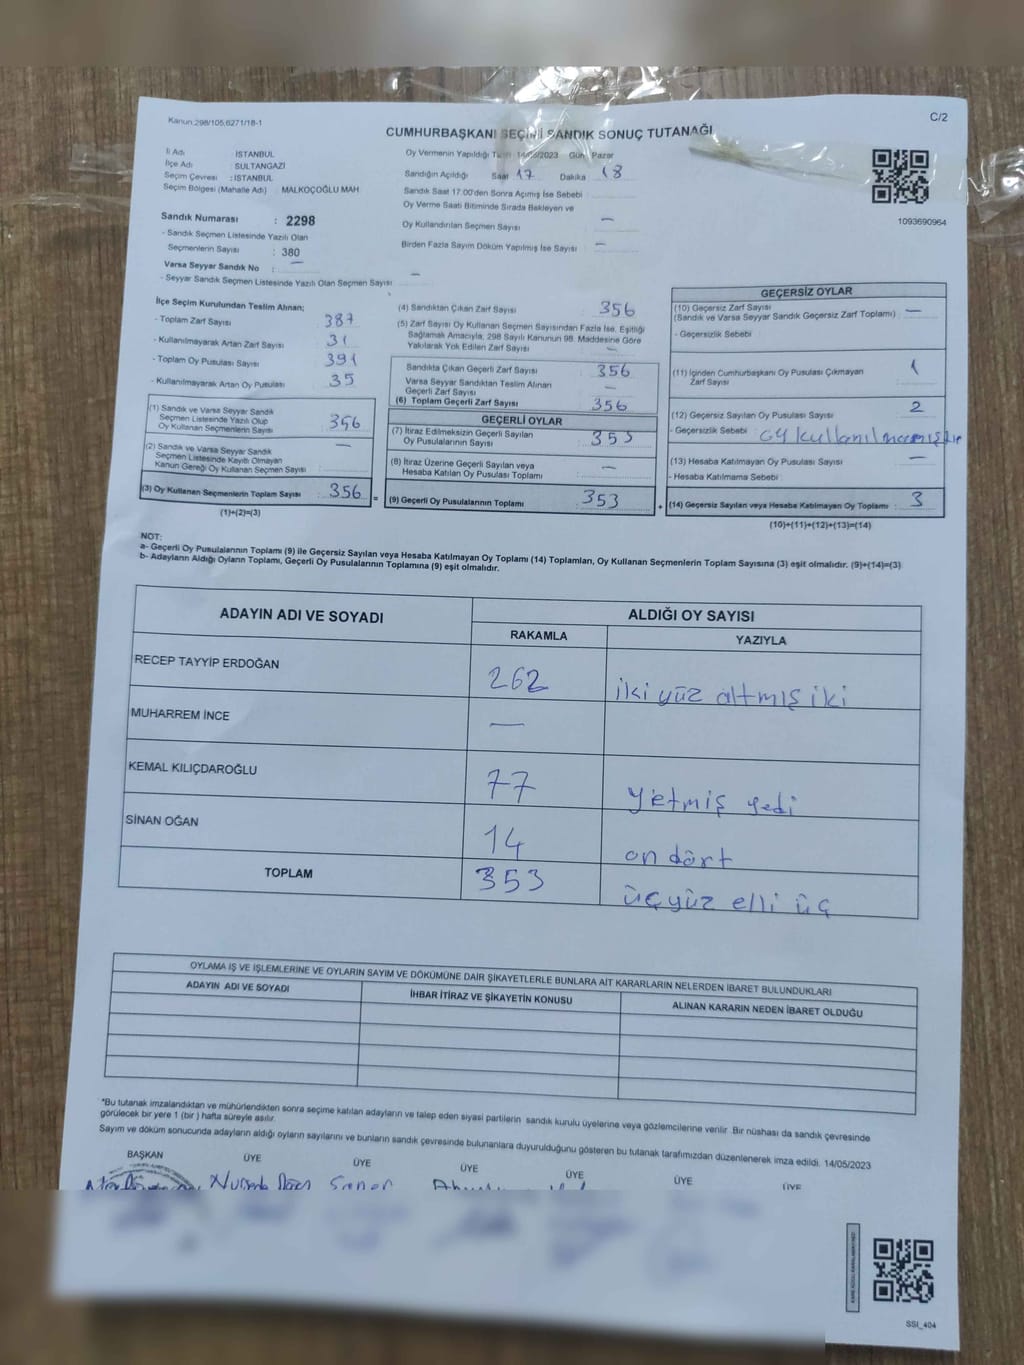 Kanun:298/105,6271/18-1
C/2
CUMHURBAŞKANI SEÇİMİ SANDIK SONUÇ TUTANAĞI
İl Adı : İSTANBUL
İlçe Adı : SULTANGAZİ
Seçim Çevresi : İSTANBUL
Seçim Bölgesi (Mahalle Adı) MALKOÇOĞLU MAH
Sandık Numarası : 2298
- Sandık Seçmen Listesinde Yazılı Olan
Seçmenlerin Sayısı : 380
Varsa Seyyar Sandık No : —
- Seyyar Sandık Seçmen Listesinde Yazılı Olan Seçmen Sayısı : —
Oy Vermenin Yapıldığı 14/05/2023 Gün Pazar
Sandığın Açıldığı Saat 17 Dakika 18
Sandık Saat 17:00'den Sonra Açımış İse Sebebi
Oy Verme Saati Bitiminde Sırada Bekleyen ve
Oy Kullandırılan Seçmen Sayısı —
Birden Fazla Sayım Döküm Yapılmış İse Sayısı —
1093690964
İlçe Seçim Kurulundan Teslim Alınan;
- Toplam Zarf Sayısı 387
- Kullanılmayarak Artan Zarf Sayısı 31
- Toplam Oy Pusulası Sayısı 391
- Kullanılmayarak Artan Oy Pusulası 35
(1) Sandık ve Varsa Seyyar Sandık
Seçmen Listesinde Yazılı Olup
Oy Kullanan Seçmenlerin Sayısı 356
(2) Sandık ve Varsa Seyyar Sandık
Seçmen Listesinde Kayıtlı Olmayan
Kanun Gereği Oy Kullanan Seçmen Sayısı : —
(3) Oy Kullanan Seçmenlerin Toplam Sayısı : 356 =
(1)+(2)=(3)
(4) Sandıktan Çıkan Zarf Sayısı 356
(5) Zarf Sayısı Oy Kullanan Seçmen Sayısından Fazla İse, Eşitliği
Sağlamak Amacıyla, 298 Sayılı Kanunun 98. Maddesine Göre
Yakılarak Yok Edilen Zarf Sayısı —
Sandıkta Çıkan Geçerli Zarf Sayısı : 356
Varsa Seyyar Sandıktan Teslim Alınan
Geçerli Zarf Sayısı —
(6) Toplam Geçerli Zarf Sayısı 356
GEÇERLİ OYLAR
(7) İtiraz Edilmeksizin Geçerli Sayılan
Oy Pusulalarının Sayısı : 353
(8) İtiraz Üzerine Geçerli Sayılan veya
Hesaba Katılan Oy Pusulası Toplamı : —
(9) Geçerli Oy Pusulalarının Toplamı : 353 +
GEÇERSİZ OYLAR
(10) Geçersiz Zarf Sayısı
(Sandık ve Varsa Seyyar Sandık Geçersiz Zarf Toplamı) : —
- Geçersizlik Sebebi :
(11) İçinden Cumhurbaşkanı Oy Pusulası Çıkmayan
Zarf Sayısı 1
(12) Geçersiz Sayılan Oy Pusulası Sayısı : 2
- Geçersizlik Sebebi : oy kullanılmamıştır
(13) Hesaba Katılmayan Oy Pusulası Sayısı : —
- Hesaba Katılmama Sebebi :
(14) Geçersiz Sayılan veya Hesaba Katılmayan Oy Toplamı : 3
(10)+(11)+(12)+(13)=(14)
NOT:
a- Geçerli Oy Pusulalarının Toplamı (9) ile Geçersiz Sayılan veya Hesaba Katılmayan Oy Toplamı (14) Toplamları, Oy Kullanan Seçmenlerin Toplam Sayısına (3) eşit olmalıdır. (9)+(14)=(3)
b- Adayların Aldığı Oyların Toplamı, Geçerli Oy Pusulalarının Toplamına (9) eşit olmalıdır.
ADAYIN ADI VE SOYADI
ALDIĞI OY SAYISI
RAKAMLA YAZIYLA
RECEP TAYYİP ERDOĞAN 262 iki yüz altmış iki
MUHARREM İNCE —
KEMAL KILIÇDAROĞLU 77 yetmiş yedi
SİNAN OĞAN 14 on dört
TOPLAM 353 üçyüz elli üç
OYLAMA İŞ VE İŞLEMLERİNE VE OYLARIN SAYIM VE DÖKÜMÜNE DAİR ŞİKAYETLERLE BUNLARA AİT KARARLARIN NELERDEN İBARET BULUNDUKLARI
ADAYIN ADI VE SOYADI İHBAR İTİRAZ VE ŞİKAYETİN KONUSU ALINAN KARARIN NEDEN İBARET OLDUĞU
*Bu tutanak imzalandıktan ve mühürlendikten sonra seçime katılan adayların ve talep eden siyasi partilerin sandık kurulu üyelerine veya gözlemcilerine verilir. Bir nüshası da sandık çevresinde
görülecek bir yere 1 (bir ) hafta süreyle asılır.
Sayım ve döküm sonucunda adayların aldığı oyların sayılarını ve bunların sandık çevresinde bulunanlara duyurulduğunu gösteren bu tutanak tarafımızdan düzenlenerek imza edildi. 14/05/2023
BAŞKAN ÜYE ÜYE ÜYE ÜYE ÜYE ÜYE
SSI_404